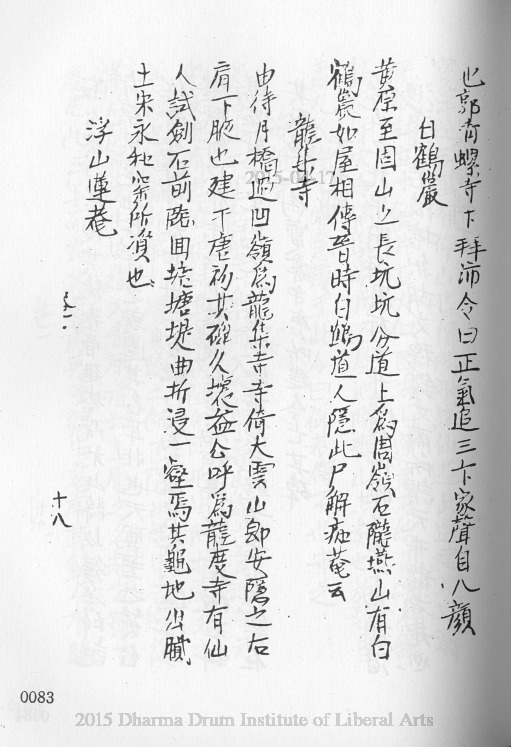 也郭青螺寺下拜沛令曰正氣追三卞家聲自八顏
白鶴巖
黃原至固山之長坑坑分道上為周嶺石隴燕山有白
鶴巖如屋相傳晉時白鶴道人隱此尸解痖菴云
龍井寺
由待月橋過凹嶺為龍集寺寺倚大雲山即安隱之右
肩下腋也建于唐初其碑久壞益公呼為龍度寺有仙
人試劍石前臨回塘堤曲折浸一壑焉其龜地出賦
土宋永和窯所資也
浮山蓮菴
十八
0083
2015-03-17
2015 Dharma Drum Institute of Liberal Arts